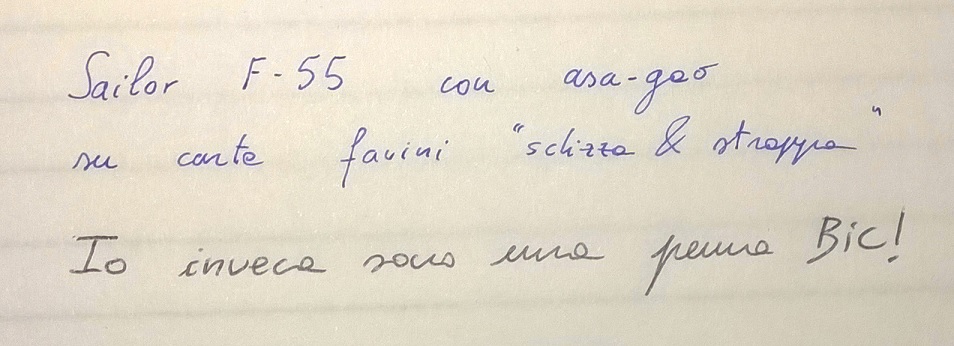 Sailor F-55 con asa-gao
su carta favini "schizza & strappa"
Io invece sono una penna Bic!